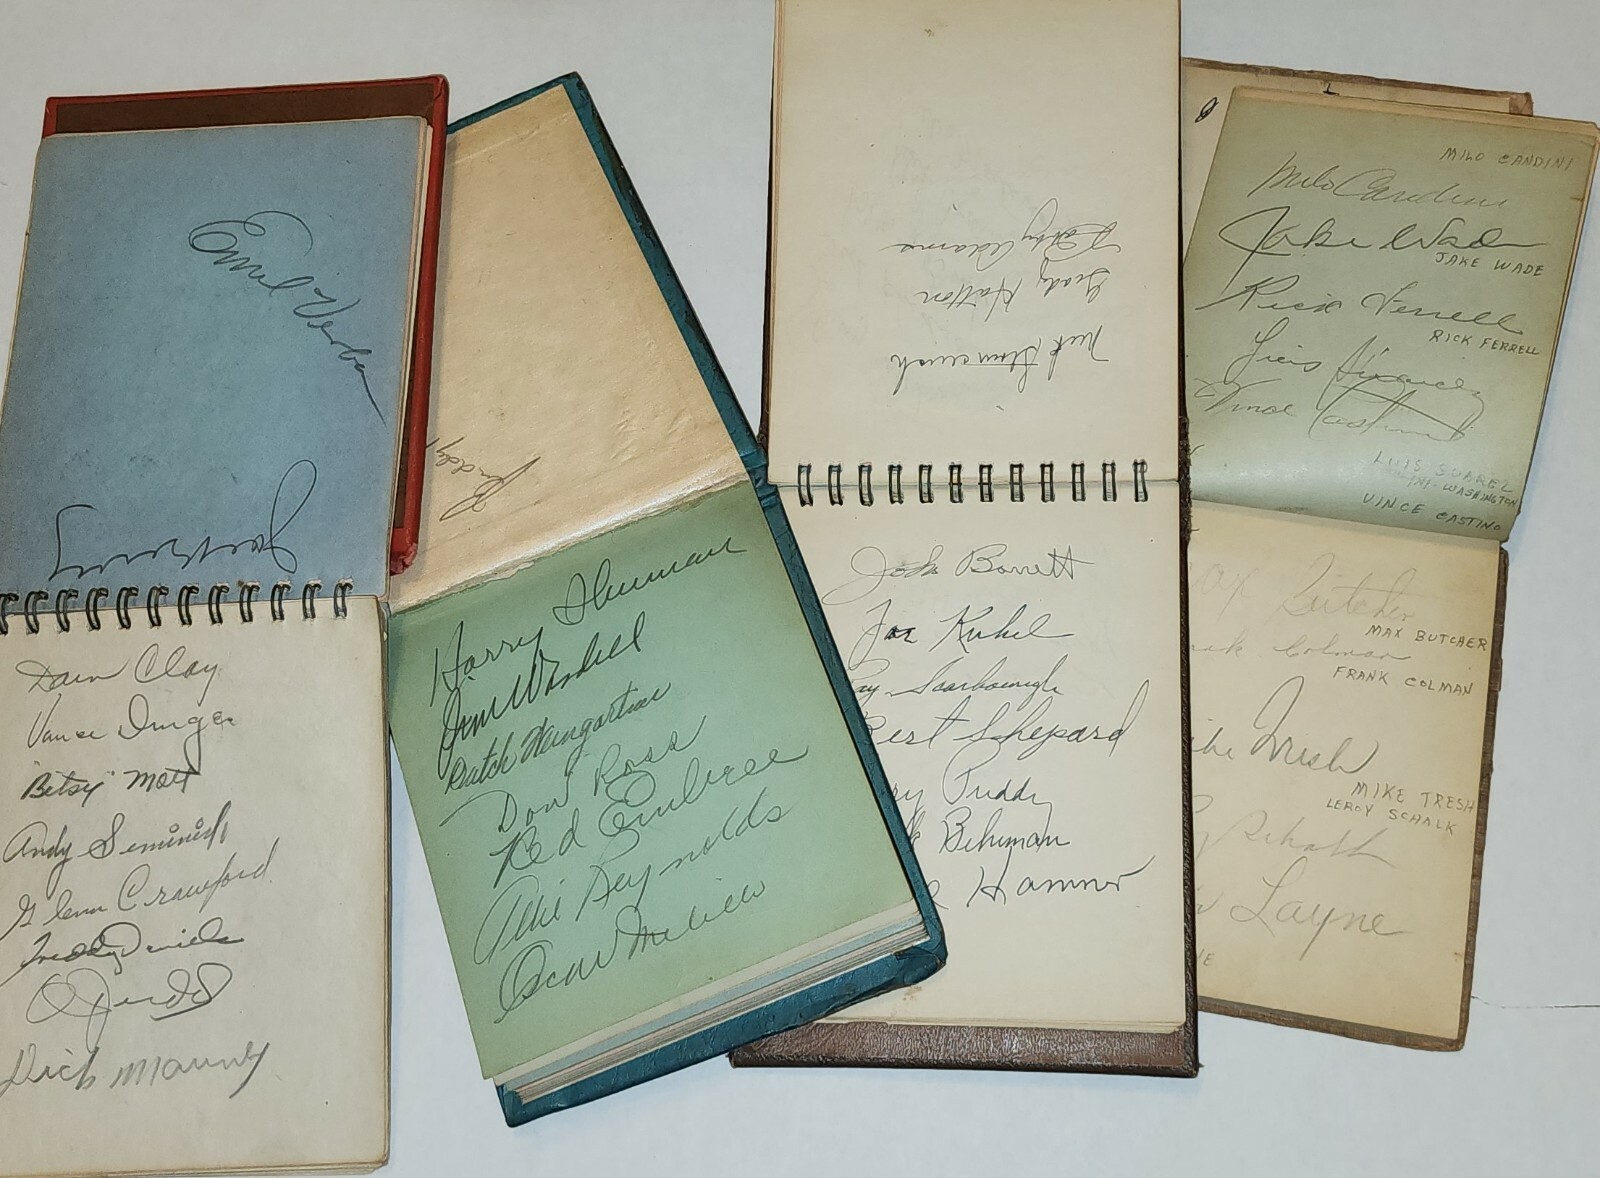 Emil Verban
Dain Clay
Vance Dinges
"Betsy" Mott
Andy Seminick
Glenn Crawford
Freddy Daniels
Dick Mauney
Buddy
Harry Shuman
Jim Wasdell
Dutch Hemgartner
Don Ross
Red Embree
Allie Reynolds
Oscar Melillo
Bobby Adams
Grady Hatton
Nick
John Barrett
Joe Kuhel
Ray Scarborough
Bert Shepard
Priddy
Behrman
Hamner
MILO CANDINI
Milo Candini
Jake Wade
JAKE WADE
Rick Ferrell
RICK FERRELL
Luis Suarez
Vince Castino
LUIS SUAREZ
INF-WASHINGTON
VINCE CASTINO
Max Butcher
MAX BUTCHER
Frank Colman
FRANK COLMAN
Mike Tresh
MIKE TRESH
LEROY SCHALK
Schalk
Layne